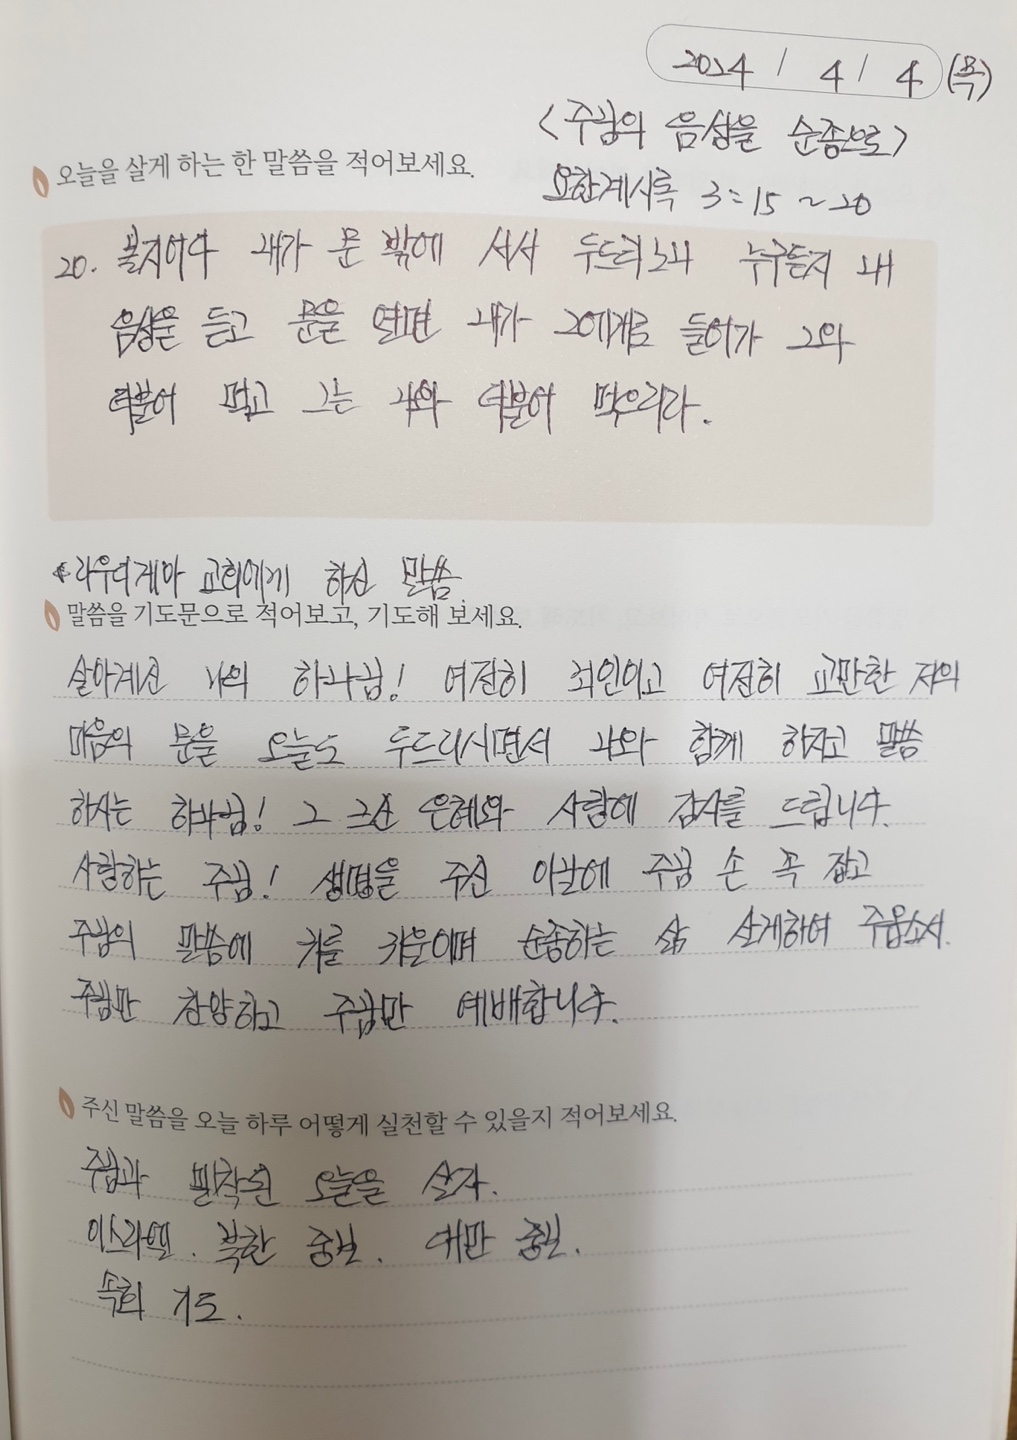 2024 / 4 / 4 (목)
<주님의 음성을 순종으로>
오늘을 살게 하는 한 말씀을 적어보세요.
요한계시록 3:15 ~ 20
20. 볼지어다 내가 문 밖에 서서 두드리노니 누구든지 내
음성을 듣고 문을 열면 내가 그에게로 들어가 그와
더불어 먹고 그는 나와 더불어 먹으리라.
* 라우디게아 교회에게 하신 말씀.
말씀을 기도문으로 적어보고, 기도해 보세요.
살아계신 나의 하나님! 여전히 죄인이고 여전히 교만한 저의
마음의 문을 오늘도 두드리시면서 나와 함께 하자고 말씀
하시는 하나님! 그 크신 은혜와 사랑에 감사를 드립니다.
사랑하는 주님! 생명을 주신 이날에 주님 손 꼭 잡고
주님의 말씀에 귀를 기울이며 순종하는 삶 살게하여 주옵소서.
주님만 찬양하고 주님만 예배합니다.
주신 말씀을 오늘 하루 어떻게 실천할 수 있을지 적어보세요.
주님과 밀착된 오늘을 살자.
이스라엘. 북한 중보. 대만 중보.
속회 기도.